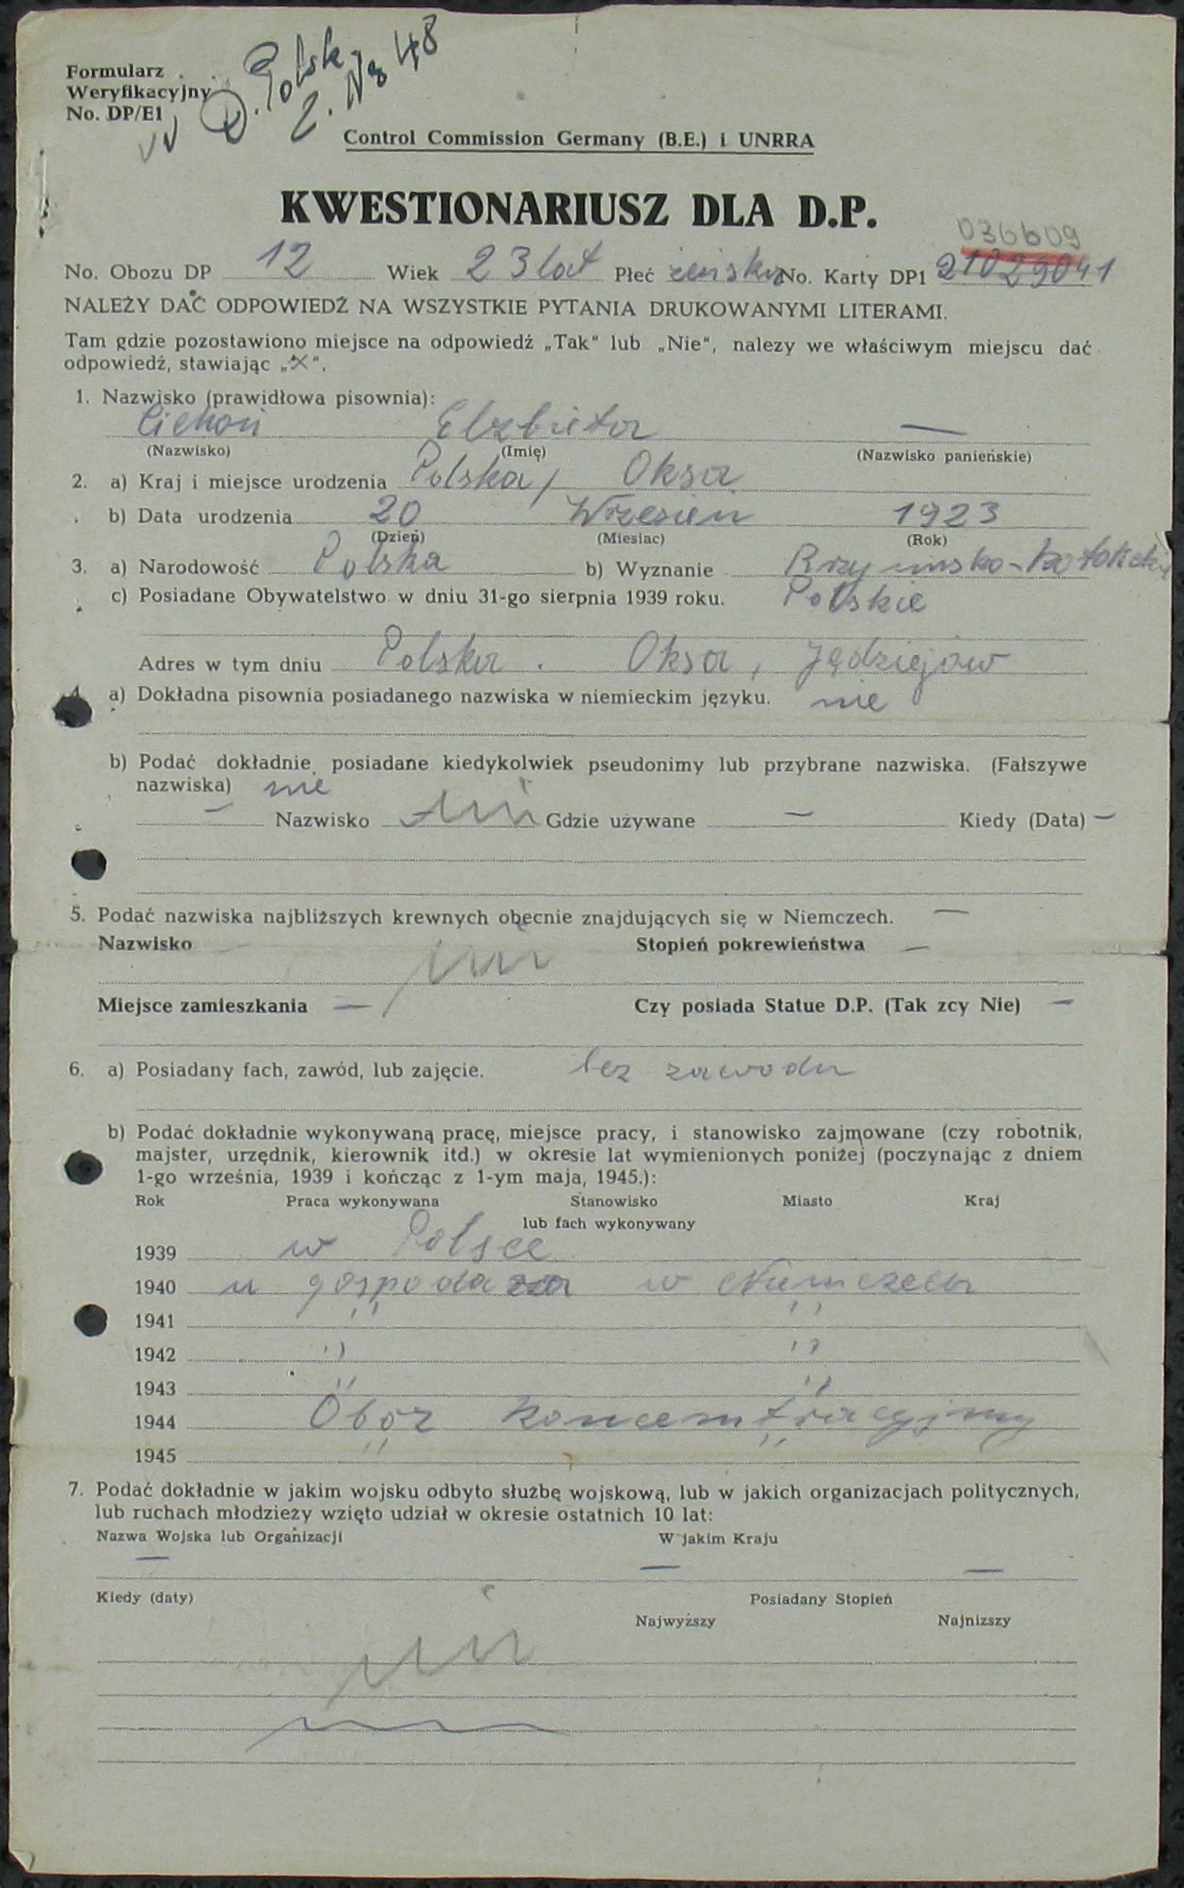 Formularz
Weryfikacyjny
No. DP/E1
D. Polsk.
2. Na 48
Control Commission Germany (B.E.) i UNRRA
KWESTIONARIUSZ DLA D.P.
036609
No. Obozu DP 12 Wiek 23 lat Płeć żeńska No. Karty DP1 21029041
NALEŻY DAĆ ODPOWIEDŹ NA WSZYSTKIE PYTANIA DRUKOWANYMI LITERAMI.
Tam gdzie pozostawiono miejsce na odpowiedź „Tak“ lub „Nie“, nalezy we właściwym miejscu dać
odpowiedź, stawiając „X“.
1. Nazwisko (prawidłowa pisownia):
Cichoń Elzbieta —
(Nazwisko) (Imię) (Nazwisko panieńskie)
2. a) Kraj i miejsce urodzenia Polska, Oksa
b) Data urodzenia 20 Wrzesień 1923
(Dzień) (Miesiac) (Rok)
3. a) Narodowość Polska b) Wyznanie Rzymsko-katolickie
c) Posiadane Obywatelstwo w dniu 31-go sierpnia 1939 roku. Polskie
Adres w tym dniu Polska. Oksa, Jędziejów
4. a) Dokładna pisownia posiadanego nazwiska w niemieckim języku. nie
b) Podać dokładnie posiadane kiedykolwiek pseudonimy lub przybrane nazwiska. (Fałszywe
nazwiska) nie
— Nazwisko Gdzie używane — Kiedy (Data) —
5. Podać nazwiska najbliższych krewnych obecnie znajdujących się w Niemczech. —
Nazwisko Stopień pokrewieństwa —
Miejsce zamieszkania — Czy posiada Statue D.P. (Tak zcy Nie) —
6. a) Posiadany fach, zawód, lub zajęcie. bez zawodu
b) Podać dokładnie wykonywaną pracę, miejsce pracy, i stanowisko zajmowane (czy robotnik,
majster, urzędnik, kierownik itd.) w okresie lat wymienionych poniżej (poczynając z dniem
1-go września, 1939 i kończąc z 1-ym maja, 1945.):
Rok Praca wykonywana Stanowisko Miasto Kraj
lub fach wykonywany
1939 w Polsce
1940 u gospodaza w Niemczech
1941 " "
1942 " "
1943 " "
1944 Obóz koncentracyjny
1945 " "
7. Podać dokładnie w jakim wojsku odbyto służbę wojskową, lub w jakich organizacjach politycznych,
lub ruchach młodzieży wzięto udział w okresie ostatnich 10 lat:
Nazwa Wojska lub Organizacji W jakim Kraju
— — —
Kiedy (daty) Posiadany Stopień
Najwyższy Najnizszy